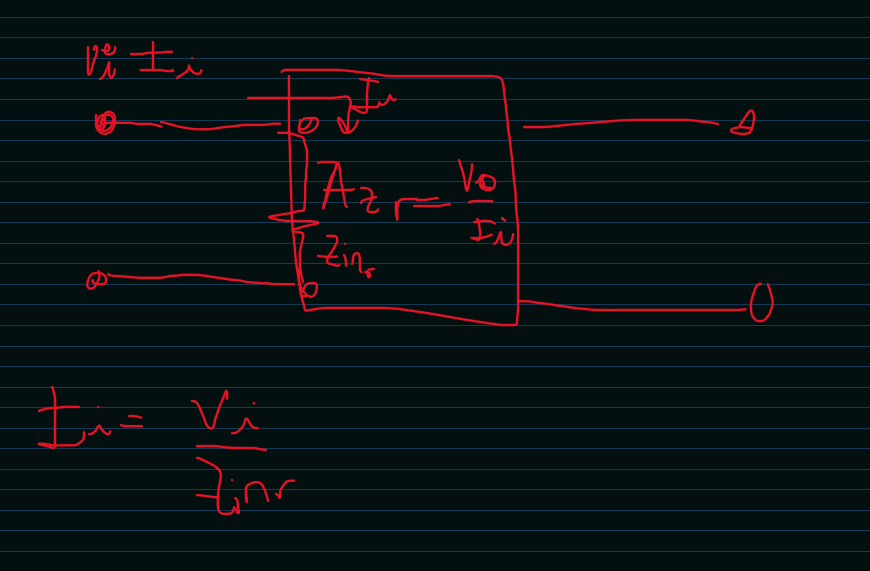 Vi Ii
Ii
Azr = Vo / Ii
Zinr
Ii = Vi / Zinr